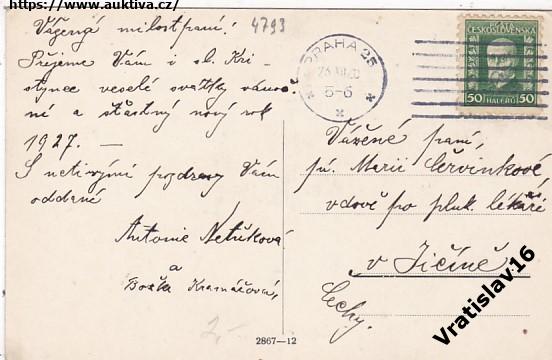 https://www.auktiva.cz/
Vážená milostpaní!
4793
Přejeme Vám i sl. Kri-
stynce veselé svátky vánoč-
né a šťastný nový rok
1927. —
S uctivými pozdravy Vám
oddané
Antonie Netuková
a
Božka Kramářová,
2,-
2867—12
PRAHA 25
5-6
POŠTA
ČESKOSLOVENSKÁ
50 HALÉŘŮ 50
Vážené paní,
pí. Marii Červinkové,
vdově po pluk. lékaři
v Jičíně
Čechy.
Vratislav 16